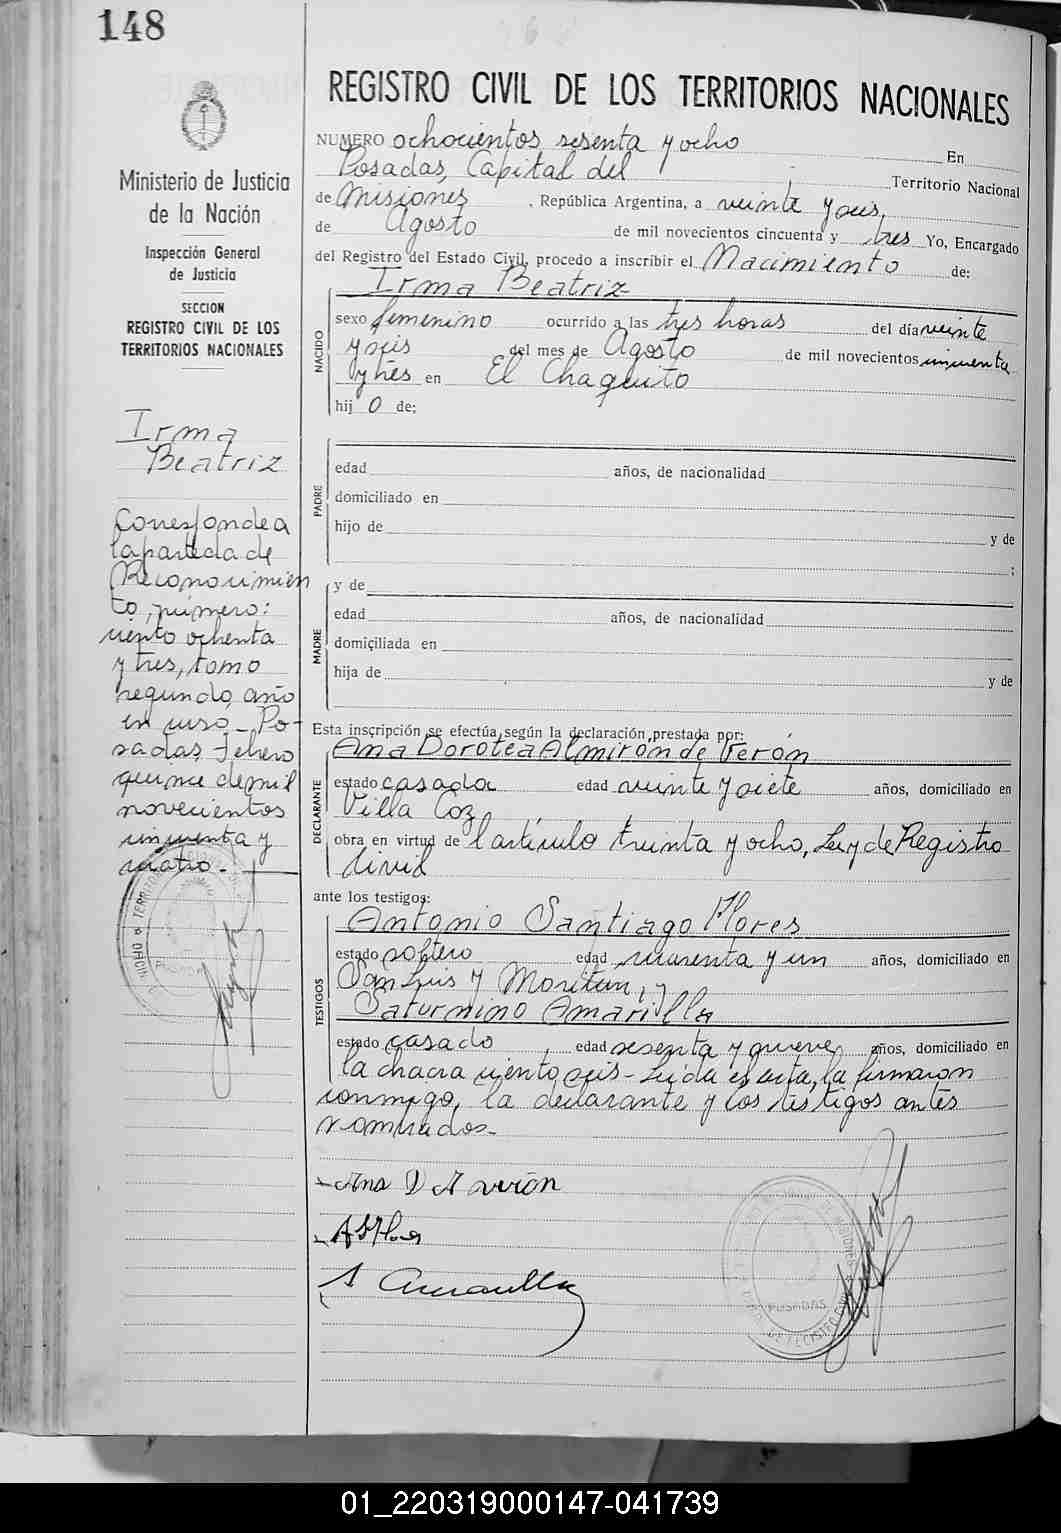 148
Ministerio de Justicia
de la Nación
Inspección General
de Justicia
SECCION
REGISTRO CIVIL DE LOS
TERRITORIOS NACIONALES
Irma
Beatriz
Corresponde a
la partida de
Reconocimien
to, número:
ciento ochenta
y tres, tomo
segundo, año
en curso - Po-
sadas, Febrero
quince de mil
novecientos
cincuenta y
cuatro.-
REGISTRO CIVIL DE LOS TERRITORIOS NACIONALES
NUMERO ochocientos sesenta y ocho En
Posadas, Capital del Territorio Nacional
de Misiones, República Argentina, a veinte y seis,
de Agosto de mil novecientos cincuenta y tres Yo, Encargado
del Registro del Estado Civil, procedo a inscribir el Nacimiento de:
NACIDO
Irma Beatriz
sexo femenino ocurrido a las tres horas del día veinte
y seis del mes de Agosto de mil novecientos cincuenta
y tres en El Chaquito
hij o de:
PADRE
edad años, de nacionalidad
domiciliado en
hijo de y de
;
MADRE
y de
edad años, de nacionalidad
domiciliada en
hija de y de
Esta inscripción se efectúa según la declaración prestada por:
DECLARANTE
Ana Dorotea Almirón de Verón
estado casada edad veinte y siete años, domiciliado en
Villa Coz
obra en virtud de l'artículo treinta y ocho, Ley de Registro
Civil
ante los testigos:
TESTIGOS
Antonio Santiago Flores
estado soltero edad cuarenta y un años, domiciliado en
San Luis y
Saturnino Amarilla
estado casado, edad sesenta y nueve, años, domiciliado en
la chacra ciento seis - Leída el acta, la firmaron
conmigo, la declarante y los testigos antes
nombrados.-
Ana D A
POSADAS
01_220319000147-041739